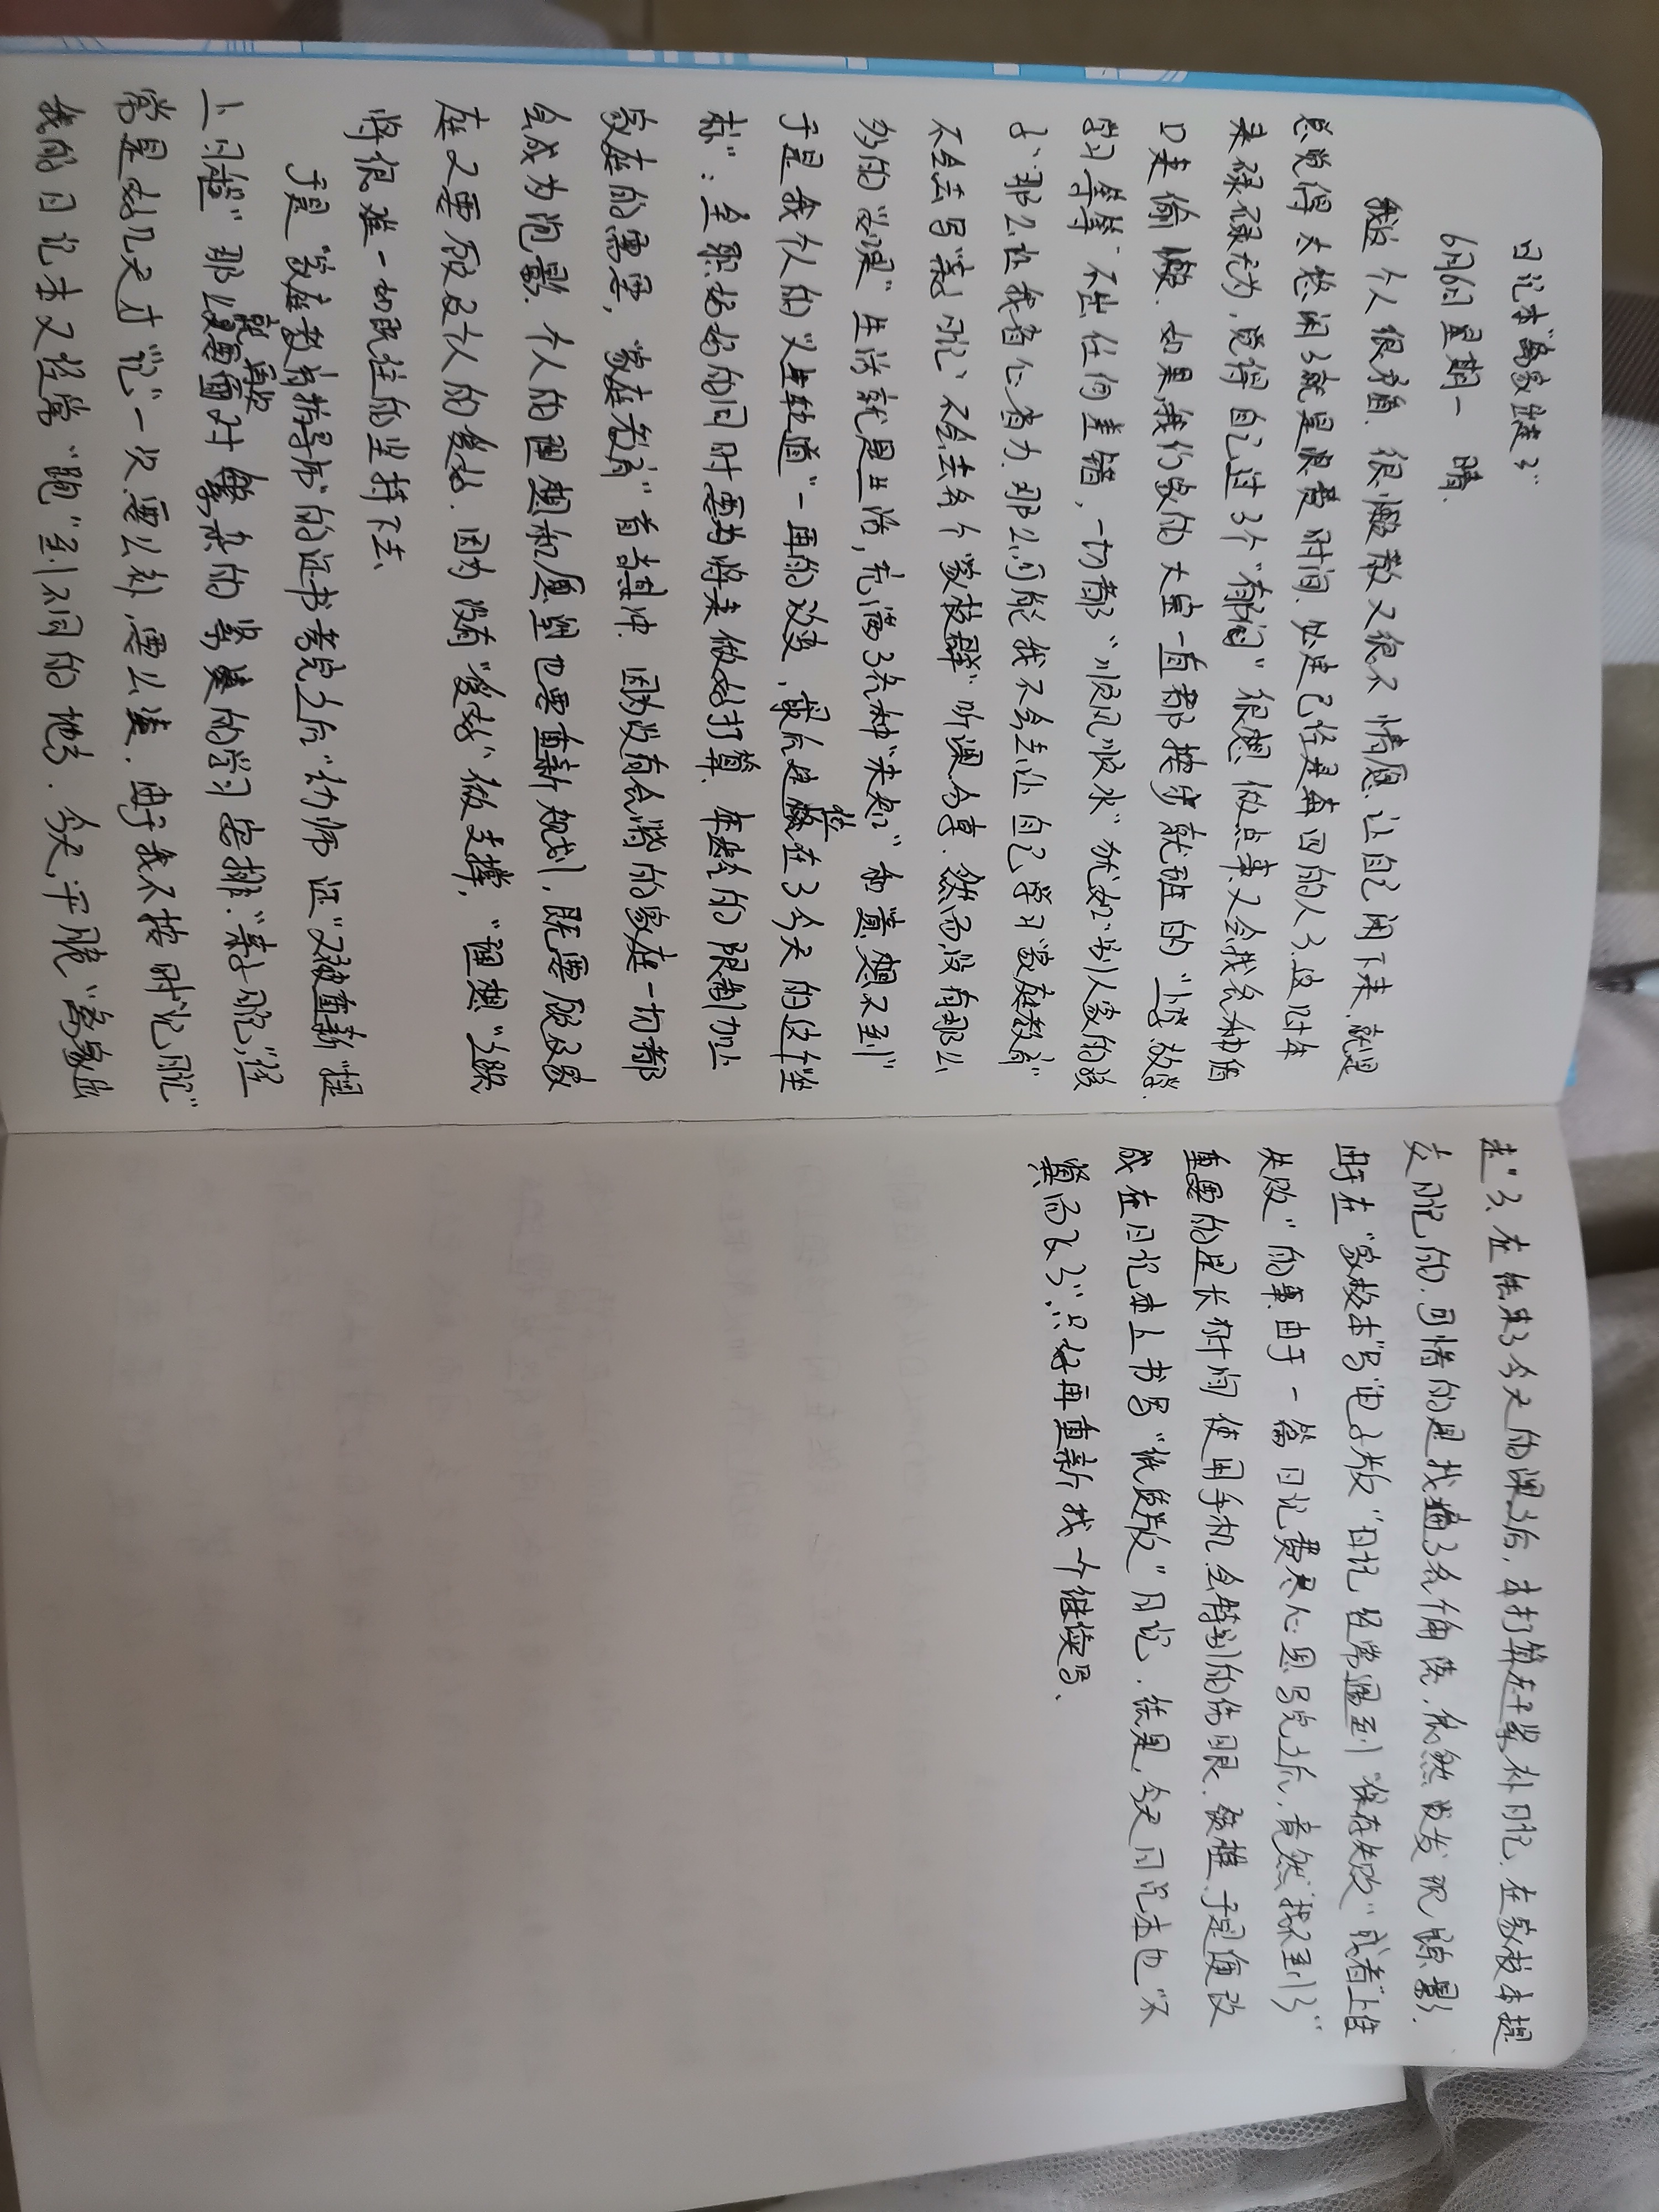 日记本“离家出走了”
6月6日 星期一 晴.
我这个人很矛盾.很懒散又很不情愿让自己闲下来,就是
总觉得太悠闲了就是浪费时间.处延已经是奔四的人了.这此年
来碌碌无为,觉得自己过了个“郁闷”很想做点事又会找各种借
口来偷懒.如果,我们家的大宝一直都按步就班的“上学.放学.
学习等等”不出任何差错,一切都“顺风顺水”犹如“别人家的孩
子”那么让我省心.省力.那么,可能我不会去让自己学习“家庭教育”
不会去写“亲子日记”不会去各个“家校群”听课.分享.然而,没有那么
多的“如果”生活就是生活,充满了各种“未知”和“意想不到”
于是我个人的“人生轨道”一再的改变,最后定位在了今天的这个“坐
标”:全职妈妈的同时要为将来做好打算.年龄的限制加上
家庭的需要,“家庭教育”首当其冲.因为没有和谐的家庭一切都
会成为泡影.个人的理想和愿望也要重新规划,既要顾及家
庭又要顾及个人的爱好.因为没有“爱好”做支撑,“理想”实际
将很难一切既往的坚持下去.
于是“家庭教育指导师”的证书考完之后“幼师证”又被重新“提
上日程”那么就要面对繁杂的紧凑的学习安排.“亲子日记”,“经
常是好几天才“记”一次.要么补,要么凑.由于我不按时“记日记”
我的日记本又经常“跑”到不同的地方.今天,干脆“离家出
走”了.在结束了今天的课之后,本打算赶紧补日记.在家校本提
交日记的.可惜的是找遍了各个角落.依然没发现踪影.
由于在“家校本”写“电子版”日记经常遇到“保存失败”或者“上传
失败”的事.由于一篇日记费尽心思写完之后,竟然“找不到了”
重要的是长时间使用手机会特别的伤眼.颈椎.于是便改
成在日记本上书写“纸质版”日记.结果,今天日记本也“不
翼而飞了”...只好再重新找个继续写.